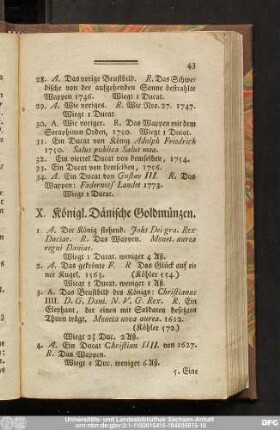 43
28. A. Das vorige Brustbild. R. Das Schwe-
dische von der aufgehenden Sonne bestrahlte
Wappen 1746. Wiegt 1 Ducat.
29. A. Wie voriges. R. Wie Nro. 27. 1747.
Wiegt 1 Ducat.
30. A. Wie voriger. R. Das Wappen mit dem
Seraphinen Orden, 1750. Wiegt 1 Ducat.
31. Ein Ducat von König Adolph Friedrich
1750. Salus publica Salus mea.
32. Ein viertel Ducat von demselben, 1754.
33. Ein Ducat von demselben, 1756.
34. A. Ein Ducat von Gustav III. R. Das
Wappen: Fädernesf Landet 1773.
Wiegt 1 Ducat.
X. Königl. Dänische Goldmünzen.
1. A. Die König stehend. Johs Dei gra. Rex
Daciae. R. Das Wappen. Monet. aurea
regni Daniae.
Wiegt 1 Ducat. weniger 4 Aß.
2. A. Das gekrönte F. R. Das Glück auf ei-
ner Kugel, 1563. (Köhler 554.)
Wiegt 1 Ducat. weniger 1 Aß.
3. A. Das Brustbild des Königs: Christianus
IIII. D. G. Dani. N. V. G. Rex. R. Ein
Elephant, der einen mit Soldaten besetzten
Thurn trägt, Moneta nova aurea. 1612.
(Köhler 572.)
Wiegt Duc. 2 Aß.
4. A. Ein Ducat Christian IIII. von 1627.
R. Das Wappen.
Wiegt 1 Duc. weniger 6 Aß.
5. Eine
Universitäts- und Landesbibliothek Sachsen-Anhalt